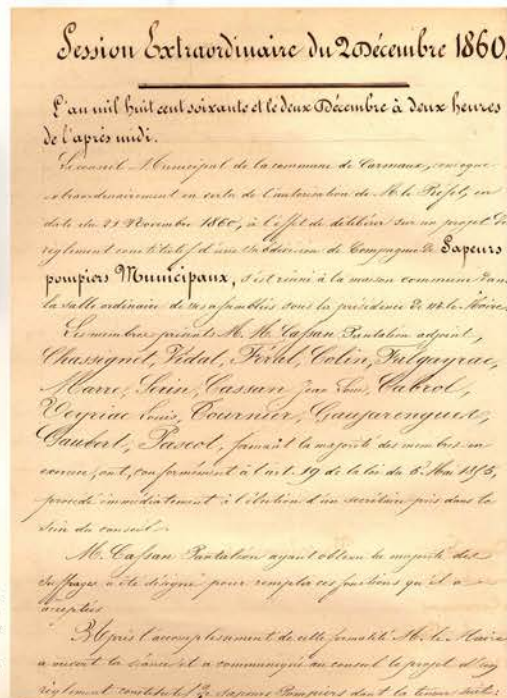 Session Extraordinaire du 2 Décembre 1860.
L'an mil huit cent soixante et le deux Décembre à deux heures
de l'après midi.
Le conseil Municipal de la commune de Carmaux, convoqué
extraordinairement en vertu de l'autorisation de M. le Préfet, en
date du 21 Novembre 1860, à l'effet de délibérer sur un projet de
règlement constitutif d'une subdivision de Compagnie de Sapeurs
pompiers Municipaux, s'est réuni à la maison commune dans
la salle ordinaire de ses assemblées sous la présidence de M. le Maire.
Les membres présents M. M. Cassan Pantaléon adjoint,
Chassignet, Vidal, Féral, Colin, Falgayrac,
Marre, Serin, Cassan Jean Louis, Cabrol,
Veyriac Louis, Tournier, Gaujarengues,
Jaubert, Pascot, formant la majorité des membres en
exercice, ont, conformément à l'art. 19 de la loi du 5 Mai 1855,
procédé immédiatement à l'élection d'un secrétaire pris dans le
sein du conseil.
M. Cassan Pantaléon ayant obtenu la majorité des
suffrages a été désigné pour remplir ces fonctions qu'il a
acceptées
Après l'accomplissement de cette formalité M. le Maire
a ouvert la séance et a communiqué au conseil le projet d'un
règlement constitutif de Sapeurs Pompiers dont la teneur suit: